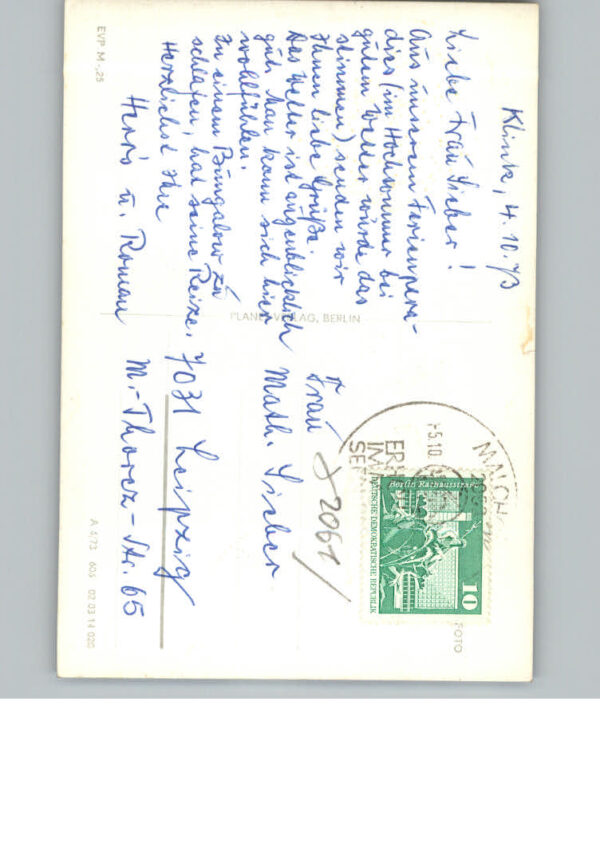 Klink, 4.10.73
Liebe Frau Sieber!
Aus unserem Ferienpara-
dies (im Hochsommer bei
gutem Wetter würde das
stimmen) senden wir
Ihnen liebe Grüße.
Das Wetter ist augenblicklich
gut. Man kann sich hier
wohlfühlen.
In einem Bungalow zu
schlafen, hat seine Reize.
Herzlichst Ihre
u. Roman
EVP M -,25
PLANET-VERLAG, BERLIN
Frau
Math. Sieber
7031 Leipzig
M.-Thorez-Str. 65
2061/
MALCH
5.10.
IM
Berlin Rathausstraße
DEUTSCHE DEMOKRATISCHE REPUBLIK
10
FOTO
A 4/73 606 02 03 14 020